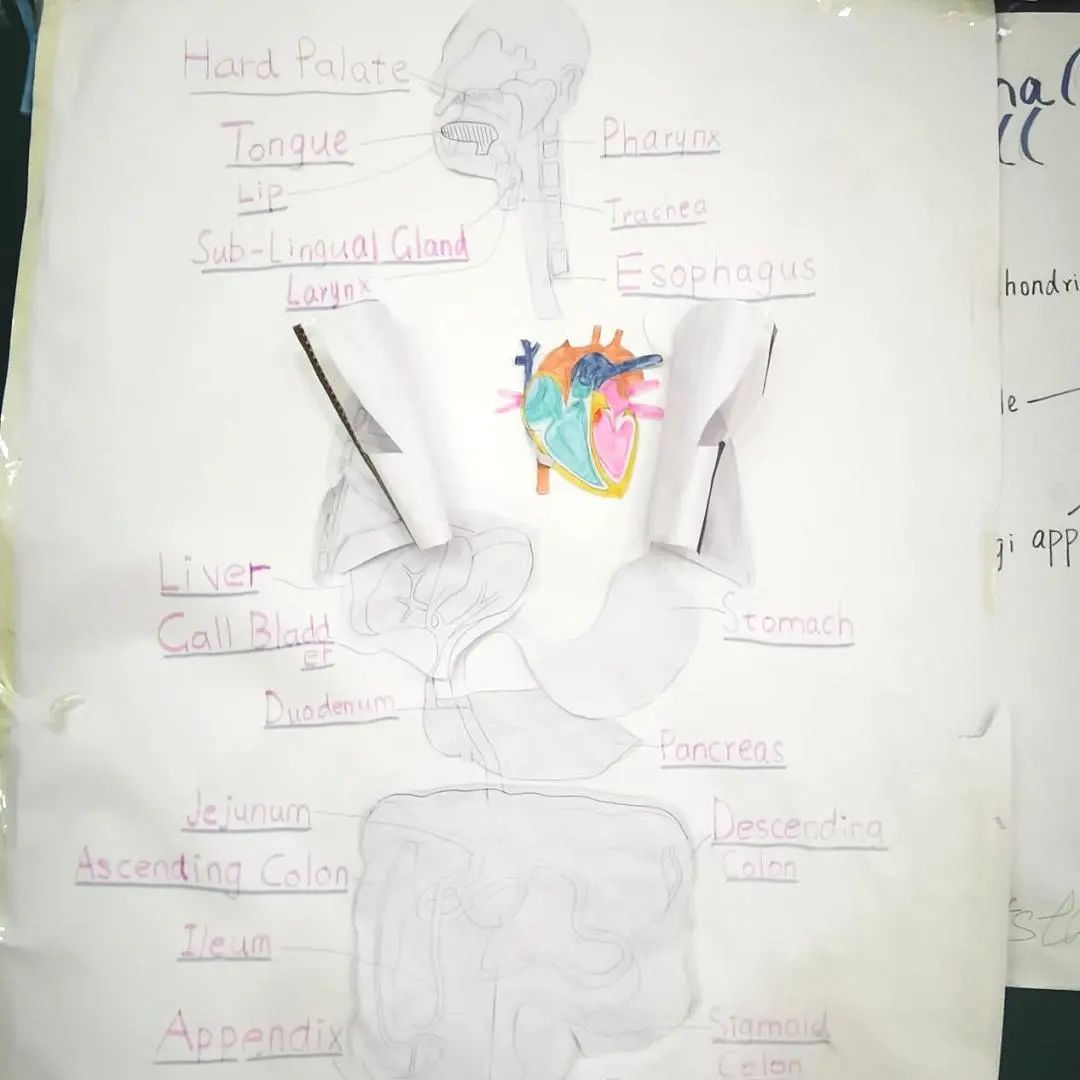 Hard Palate
Tongue
Lip
Sub-Lingual Gland
Larynx
Pharynx
Trachea
Esophagus
Liver
Gall Bladd
er
Duodenum
Stomach
Pancreas
Jejunum
Ascending Colon
Ileum
Appendix
Descending
Colon
Sigmoid
Colon
hondri
le
gi app